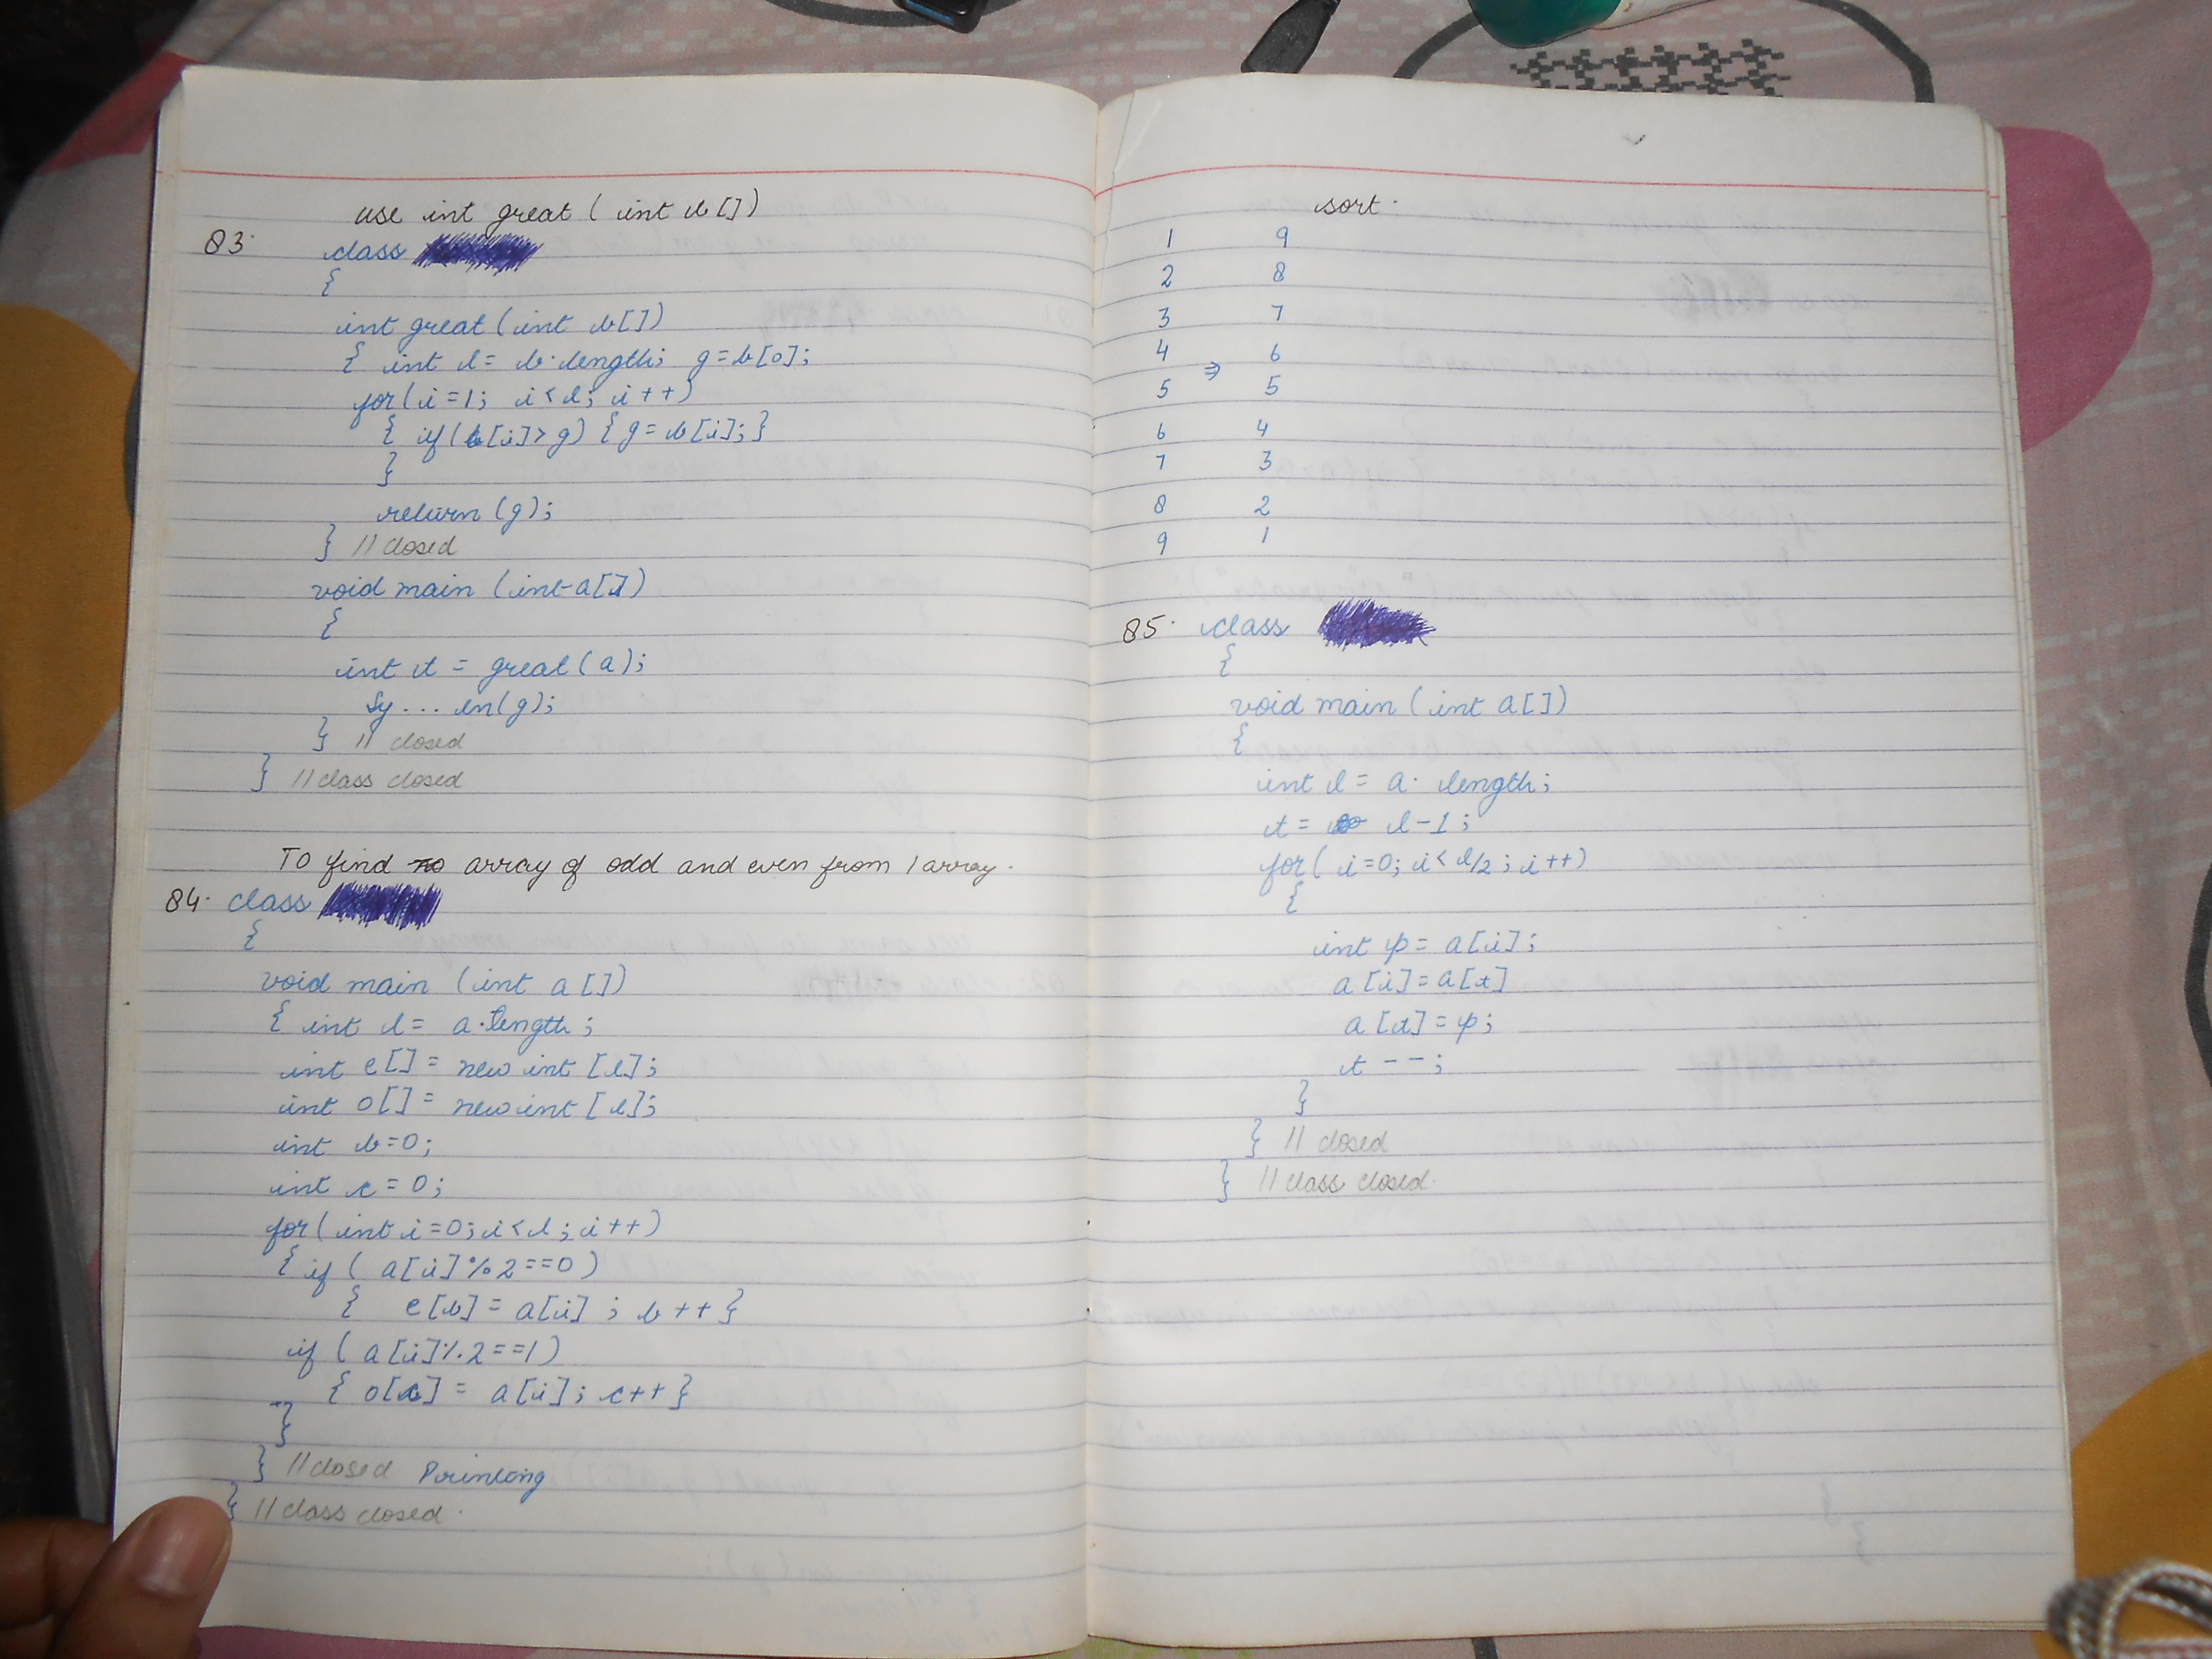 use int great ( int b[])
83.
class
{
int great (int b[])
{ int l = b.length; g=b[0];
for(i=1; i<l; i++)
{ if(b[i]>g) {g=b[i];}
}
return (g);
} // closed
void main (int a[])
{
int t = great(a);
Sy... ln(g);
} // closed
} // class closed
To find array of odd and even from 1 array.
84. class
{
void main (int a[])
{ int l = a.length;
int e[] = new int [l];
int o[] = new int [l];
int b=0;
int c=0;
for(int i=0; i<l; i++)
{ if ( a[i]%2==0)
{ e[b] = a[i]; b++}
if ( a[i]%2==1)
{ o[c] = a[i]; c++}
}
} // closed Printing
} // class closed.
sort.
1 9
2 8
3 7
4 6
5 ⇒ 5
6 4
7 3
8 2
9 1
85. class
{
void main (int a[])
{
int l = a.length;
t = l-1;
for( i=0; i<l/2; i++)
{
int p = a[i];
a[i]=a[t]
a[t]=p;
t--;
}
} // closed
} // class closed.